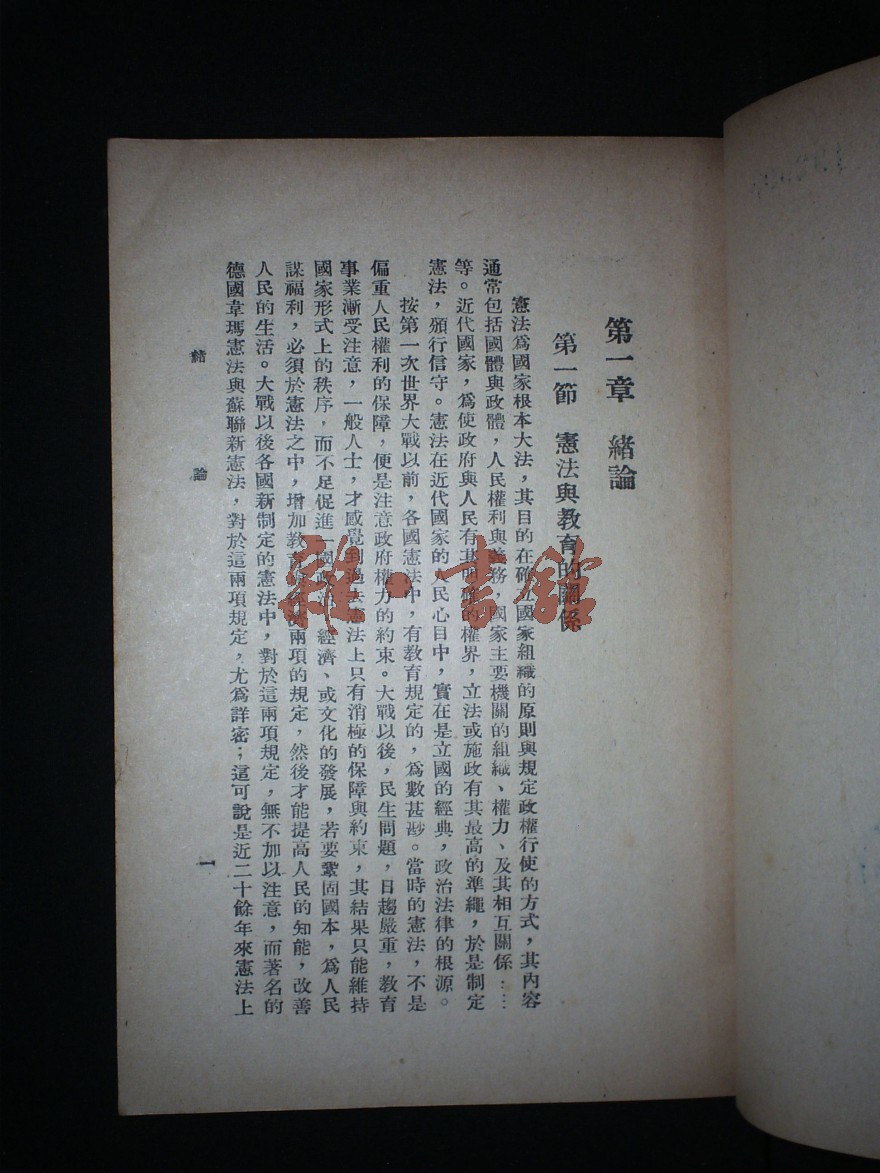 第一章 緒論
第一節 憲法與教育的關係
憲法爲國家根本大法，其目的在確立國家組織的原則與規定政權行使的方式，其內容
通常包括國體與政體，人民權利與義務，國家主要機關的組織、權力、及其相互關係……
等。近代國家，爲使政府與人民有其明確的權界，立法或施政有其最高的準繩，於是制定
憲法，頒行信守。憲法在近代國家的人民心目中，實在是立國的經典，政治法律的根源。
按第一次世界大戰以前，各國憲法中，有教育規定的，爲數甚尠。當時的憲法，不是
偏重人民權利的保障，便是注意政府權力的約束。大戰以後，民生問題，日趨嚴重，教育
事業漸受注意，一般人士，才感覺到過去憲法上只有消極的保障與約束，其結果只能維持
國家形式上的秩序，而不足促進一國政治、經濟、或文化的發展，若要鞏固國本，爲人民
謀福利，必須於憲法之中，增加教育與經濟兩項的規定，然後才能提高人民的知能，改善
人民的生活。大戰以後各國新制定的憲法中，對於這兩項規定，無不加以注意，而著名的
德國韋瑪憲法與蘇聯新憲法，對於這兩項規定，尤爲詳密；這可說是近二十餘年來憲法上
緒 論 一
雜·書館